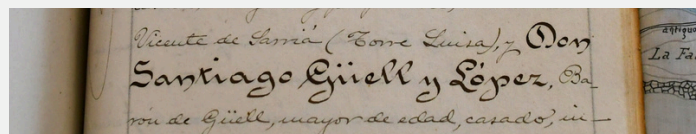 Vicente de Sarriá (Torre Luisa), y Don
Santiago Güell y López, Ba-
rón de Güell, mayor de edad, casado, in-
antigua
La Fa